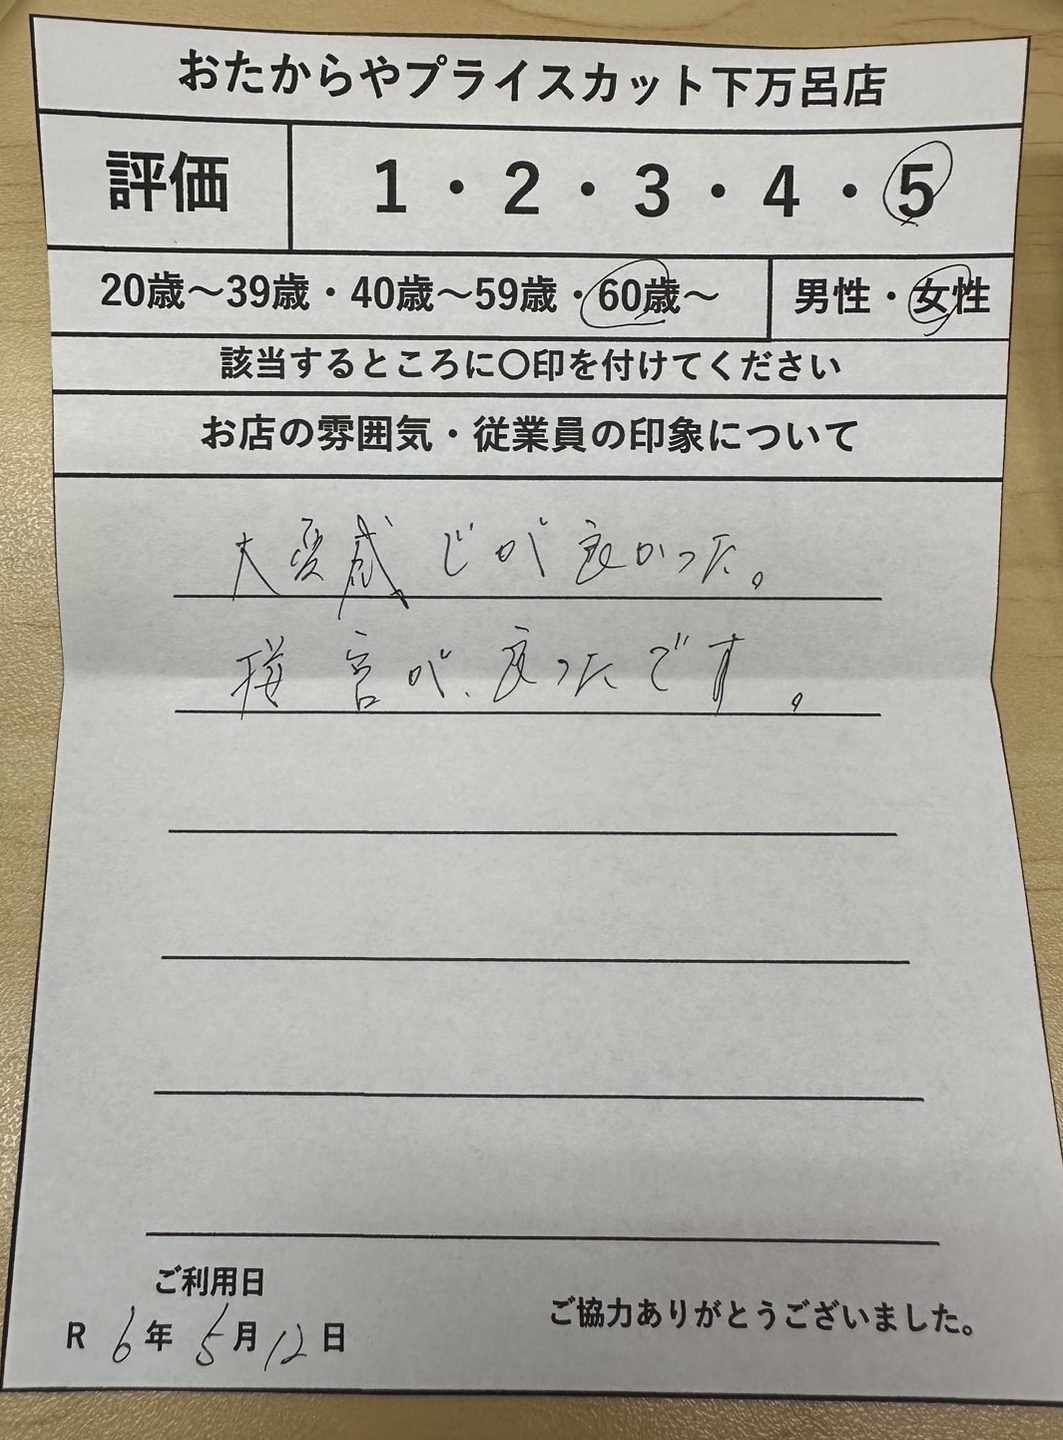 おたからやプライスカット下万呂店
評価
1・2・3・4・5
20歳～39歳・40歳～59歳・60歳～
男性・女性
該当するところに〇印を付けてください
お店の雰囲気・従業員の印象について
大変感じが良かった。
接客が、良ったです。
ご利用日
R 6年 5月 12日
ご協力ありがとうございました。